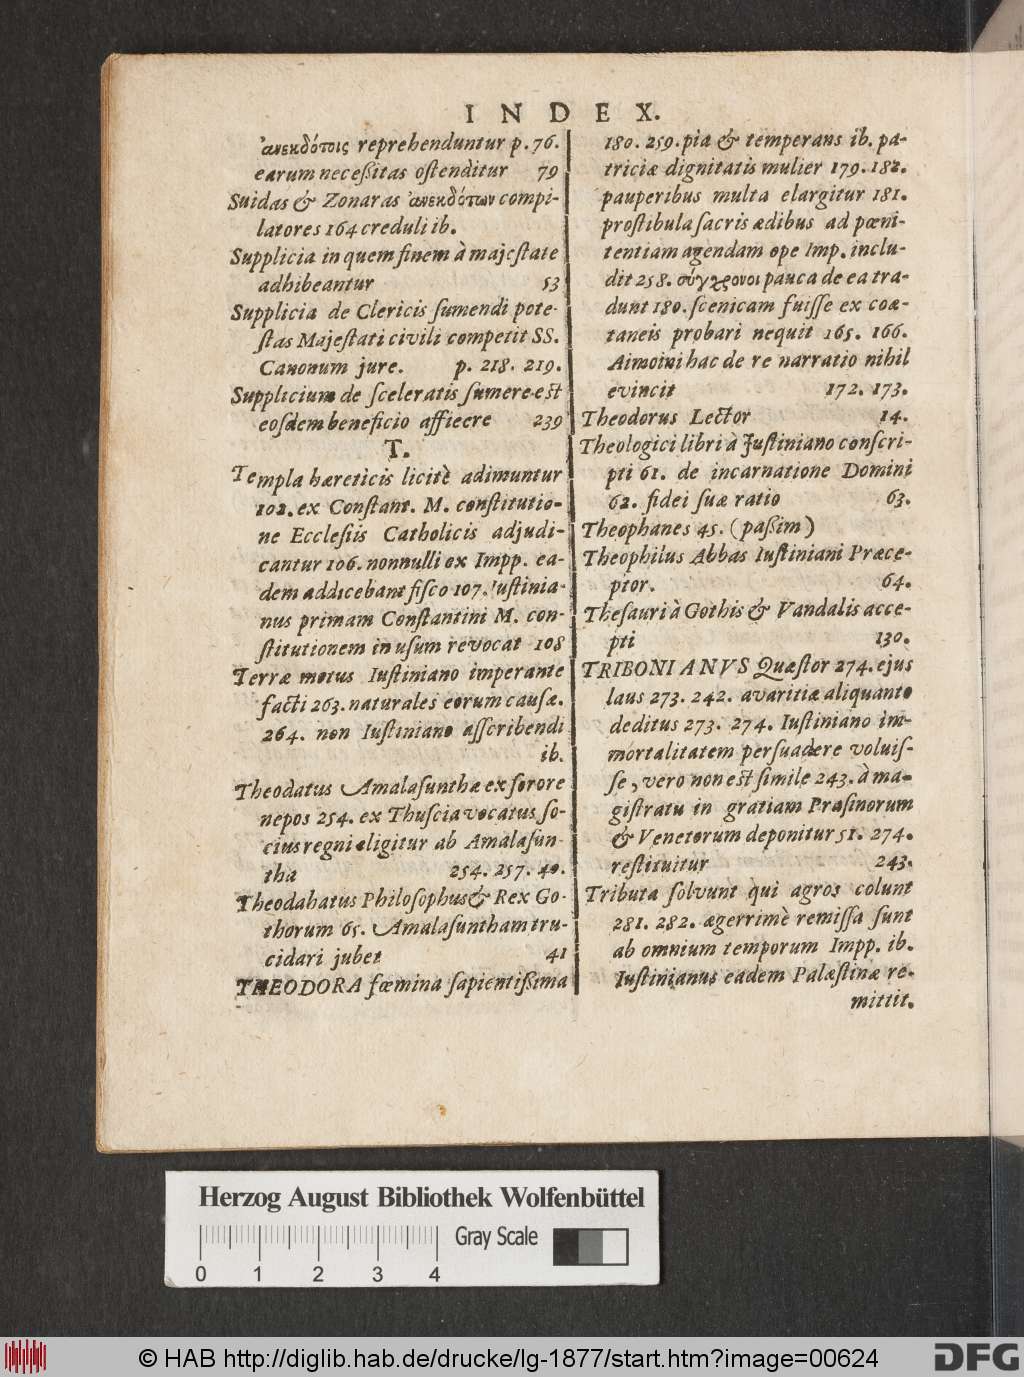 INDEX.
ἀνεκδότοις reprehenduntur p. 76.
earum neceßitas oſtenditur 79
Suidas & Zonaras ἀνεκδότων compi-
latores 164 creduli ib.
Supplicia in quem finem à majeſtate
adhibeantur 53
Supplicia de Clericis ſumendi pote-
ſtas Majeſtati civili competit SS.
Canonum jure. p. 218. 219.
Supplicium de ſceleratis ſumere eſt
eoſdem beneficio afficere 239
T.
Templa hæreticis licitè adimuntur
102. ex Conſtant. M. conſtitutio-
ne Eccleſiis Catholicis adjudi-
cantur 106. nonnulli ex Impp. ea-
dem addicebant fiſco 107. Iuſtinia-
nus primam Conſtantini M. con-
ſtitutionem in uſum revocat 108
Terræ motus Iuſtiniano imperante
facti 263. naturales eorum cauſæ.
264. non Iuſtiniano aſſcribendi
ib.
Theodatus Amalaſunthæ ex ſorore
nepos 254. ex Thuſcia vocatus ſo-
cius regni eligitur ab Amalaſun-
tha 254. 257. 40.
Theodahatus Philoſophus & Rex Go-
thorum 65. Amalaſuntham tru-
cidari jubet 41
THEODORA fœmina ſapientißima
180. 259. pia & temperans ib. pa-
triciæ dignitatis mulier 179. 182.
pauperibus multa elargitur 181.
proſtibula ſacris ædibus ad pœni-
tentiam agendam ope Imp. inclu-
dit 258. σύγχρονοι pauca de ea tra-
dunt 180. ſcenicam fuiſſe ex coæ-
taneis probari nequit 165. 166.
Aimoini hac de re narratio nihil
evincit 172. 173.
Theodorus Lector 14.
Theologici libri à Juſtiniano conſcri-
pti 61. de incarnatione Domini
62. fidei ſuæ ratio 63.
Theophanes 45. (paßim)
Theophilus Abbas Iuſtiniani Præce-
ptor. 64.
Theſauri à Gothis & Vandalis acce-
pti 130.
TRIBONIANVS Quæſtor 274. ejus
laus 273. 242. avaritiæ aliquanto
deditus 273. 274. Iuſtiniano im-
mortalitatem perſuadere voluiſ-
ſe, vero non eſt ſimile 243. à ma-
giſtratu in gratiam Praſinorum
& Venetorum deponitur 51. 274.
reſtituitur 243.
Tributa ſolvunt qui agros colunt
281. 282. ægerrimè remiſſa ſunt
ab omnium temporum Impp. ib.
Iuſtinianus eadem Palæſtinæ re-
mittit.
Herzog August Bibliothek Wolfenbüttel
Gray Scale
0 1 2 3 4
© HAB http://diglib.hab.de/drucke/lg-1877/start.htm?image=00624
DFG